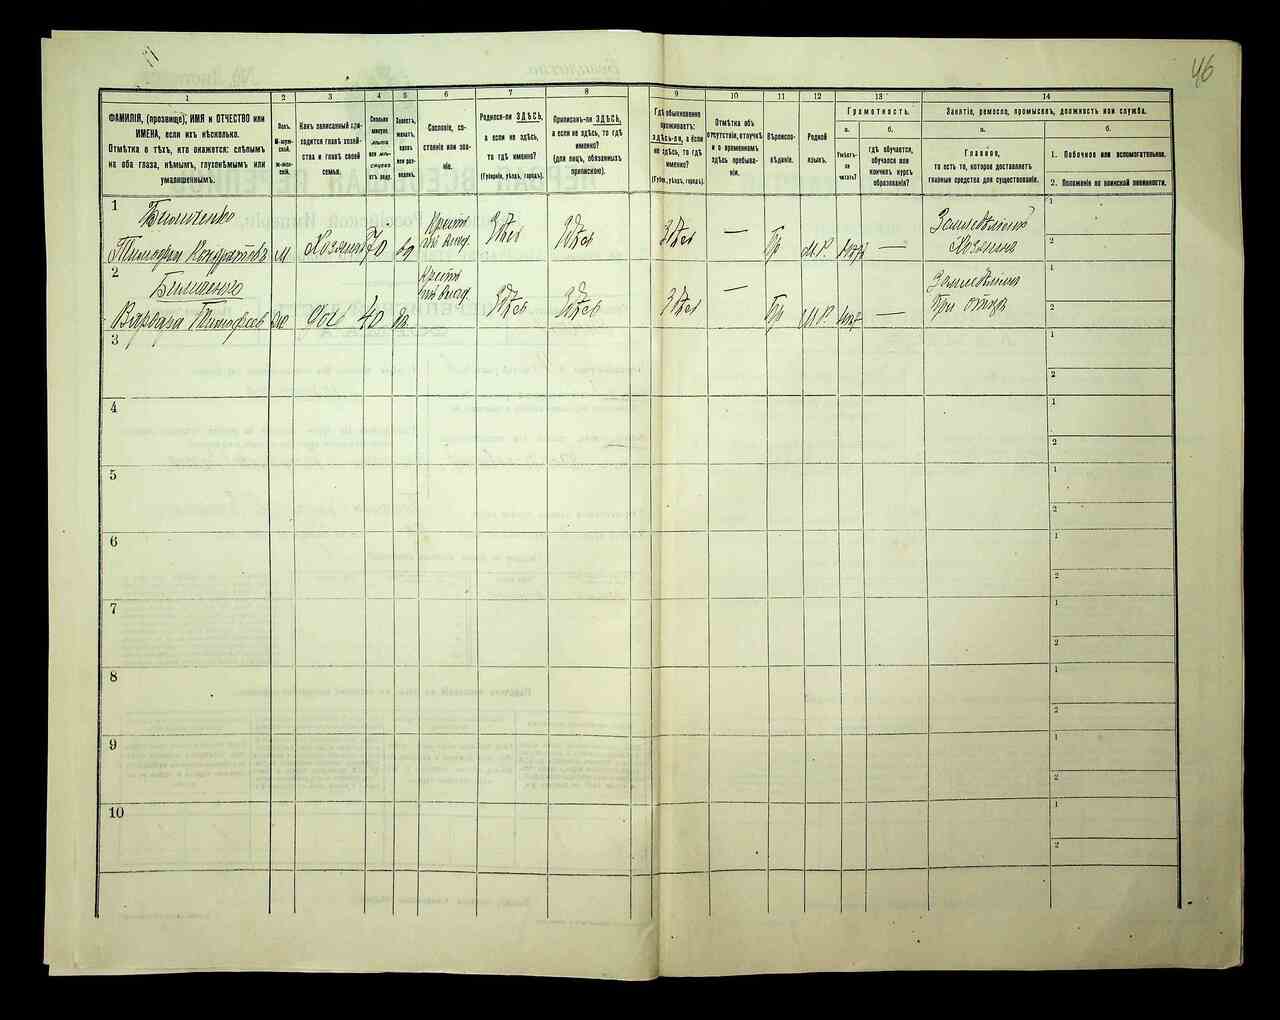 46
1
2
3
4
5
6
7
8
9
10
11
12
13
14
ФАМИЛІЯ, (прозвище), ИМЯ и ОТЧЕСТВО или
ИМЕНА, если ихъ нѣсколько.
Отмѣтка о тѣхъ, кто окажется: слѣпымъ
на оба глаза, нѣмымъ, глухонѣмымъ или
умалишеннымъ.
Полъ.
М-муж-
ской.
Ж-жен-
скій.
Какъ записанный при-
ходится главѣ хозяй-
ства и главѣ своей
семьи.
Сколько
минуло
лѣтъ
или мѣ-
сяцевъ
отъ роду.
Холостъ,
женатъ,
вдовъ
или раз-
веденъ.
Сословіе, со-
стояніе или зва-
ніе.
Родился-ли ЗДѢСЬ,
а если не здѣсь,
то гдѣ именно?
(Губернія, уѣздъ, городъ).
Приписанъ-ли ЗДѢСЬ,
а если не здѣсь, то гдѣ
именно?
(для лицъ, обязанныхъ
припискою).
Гдѣ обыкновенно
проживаетъ:
здѣсь-ли, а если
не здѣсь, то гдѣ
именно?
(Губерн., уѣздъ, городъ).
Отмѣтка объ
отсутствіи, отлучкѣ
и о временномъ
здѣсь пребыва-
ніи.
Вѣроиспо-
вѣданіе.
Родной
языкъ.
Грамотность.
а.
б.
Умѣетъ-
ли
читать?
гдѣ обучается,
обучался или
кончилъ курсъ
образованія?
Занятіе, ремесло, промыселъ, должность или служба.
а.
б.
Главное,
то есть то, которое доставляетъ
главныя средства для существованія.
1. Побочное или вспомогательное.
2. Положеніе по воинской повинности.
1
Тимофей Кондратовъ м Хозяинъ 70 вд Крест здѣсь здѣсь здѣсь — Пр М.Р. — Хозяинъ
1
2
2
Варвара Тимофеев 40 здѣсь здѣсь здѣсь — Пр М.Р. — При отцѣ
1
2
3
1
2
4
1
2
5
1
2
6
1
2
7
1
2
8
1
2
9
1
2
10
1
2